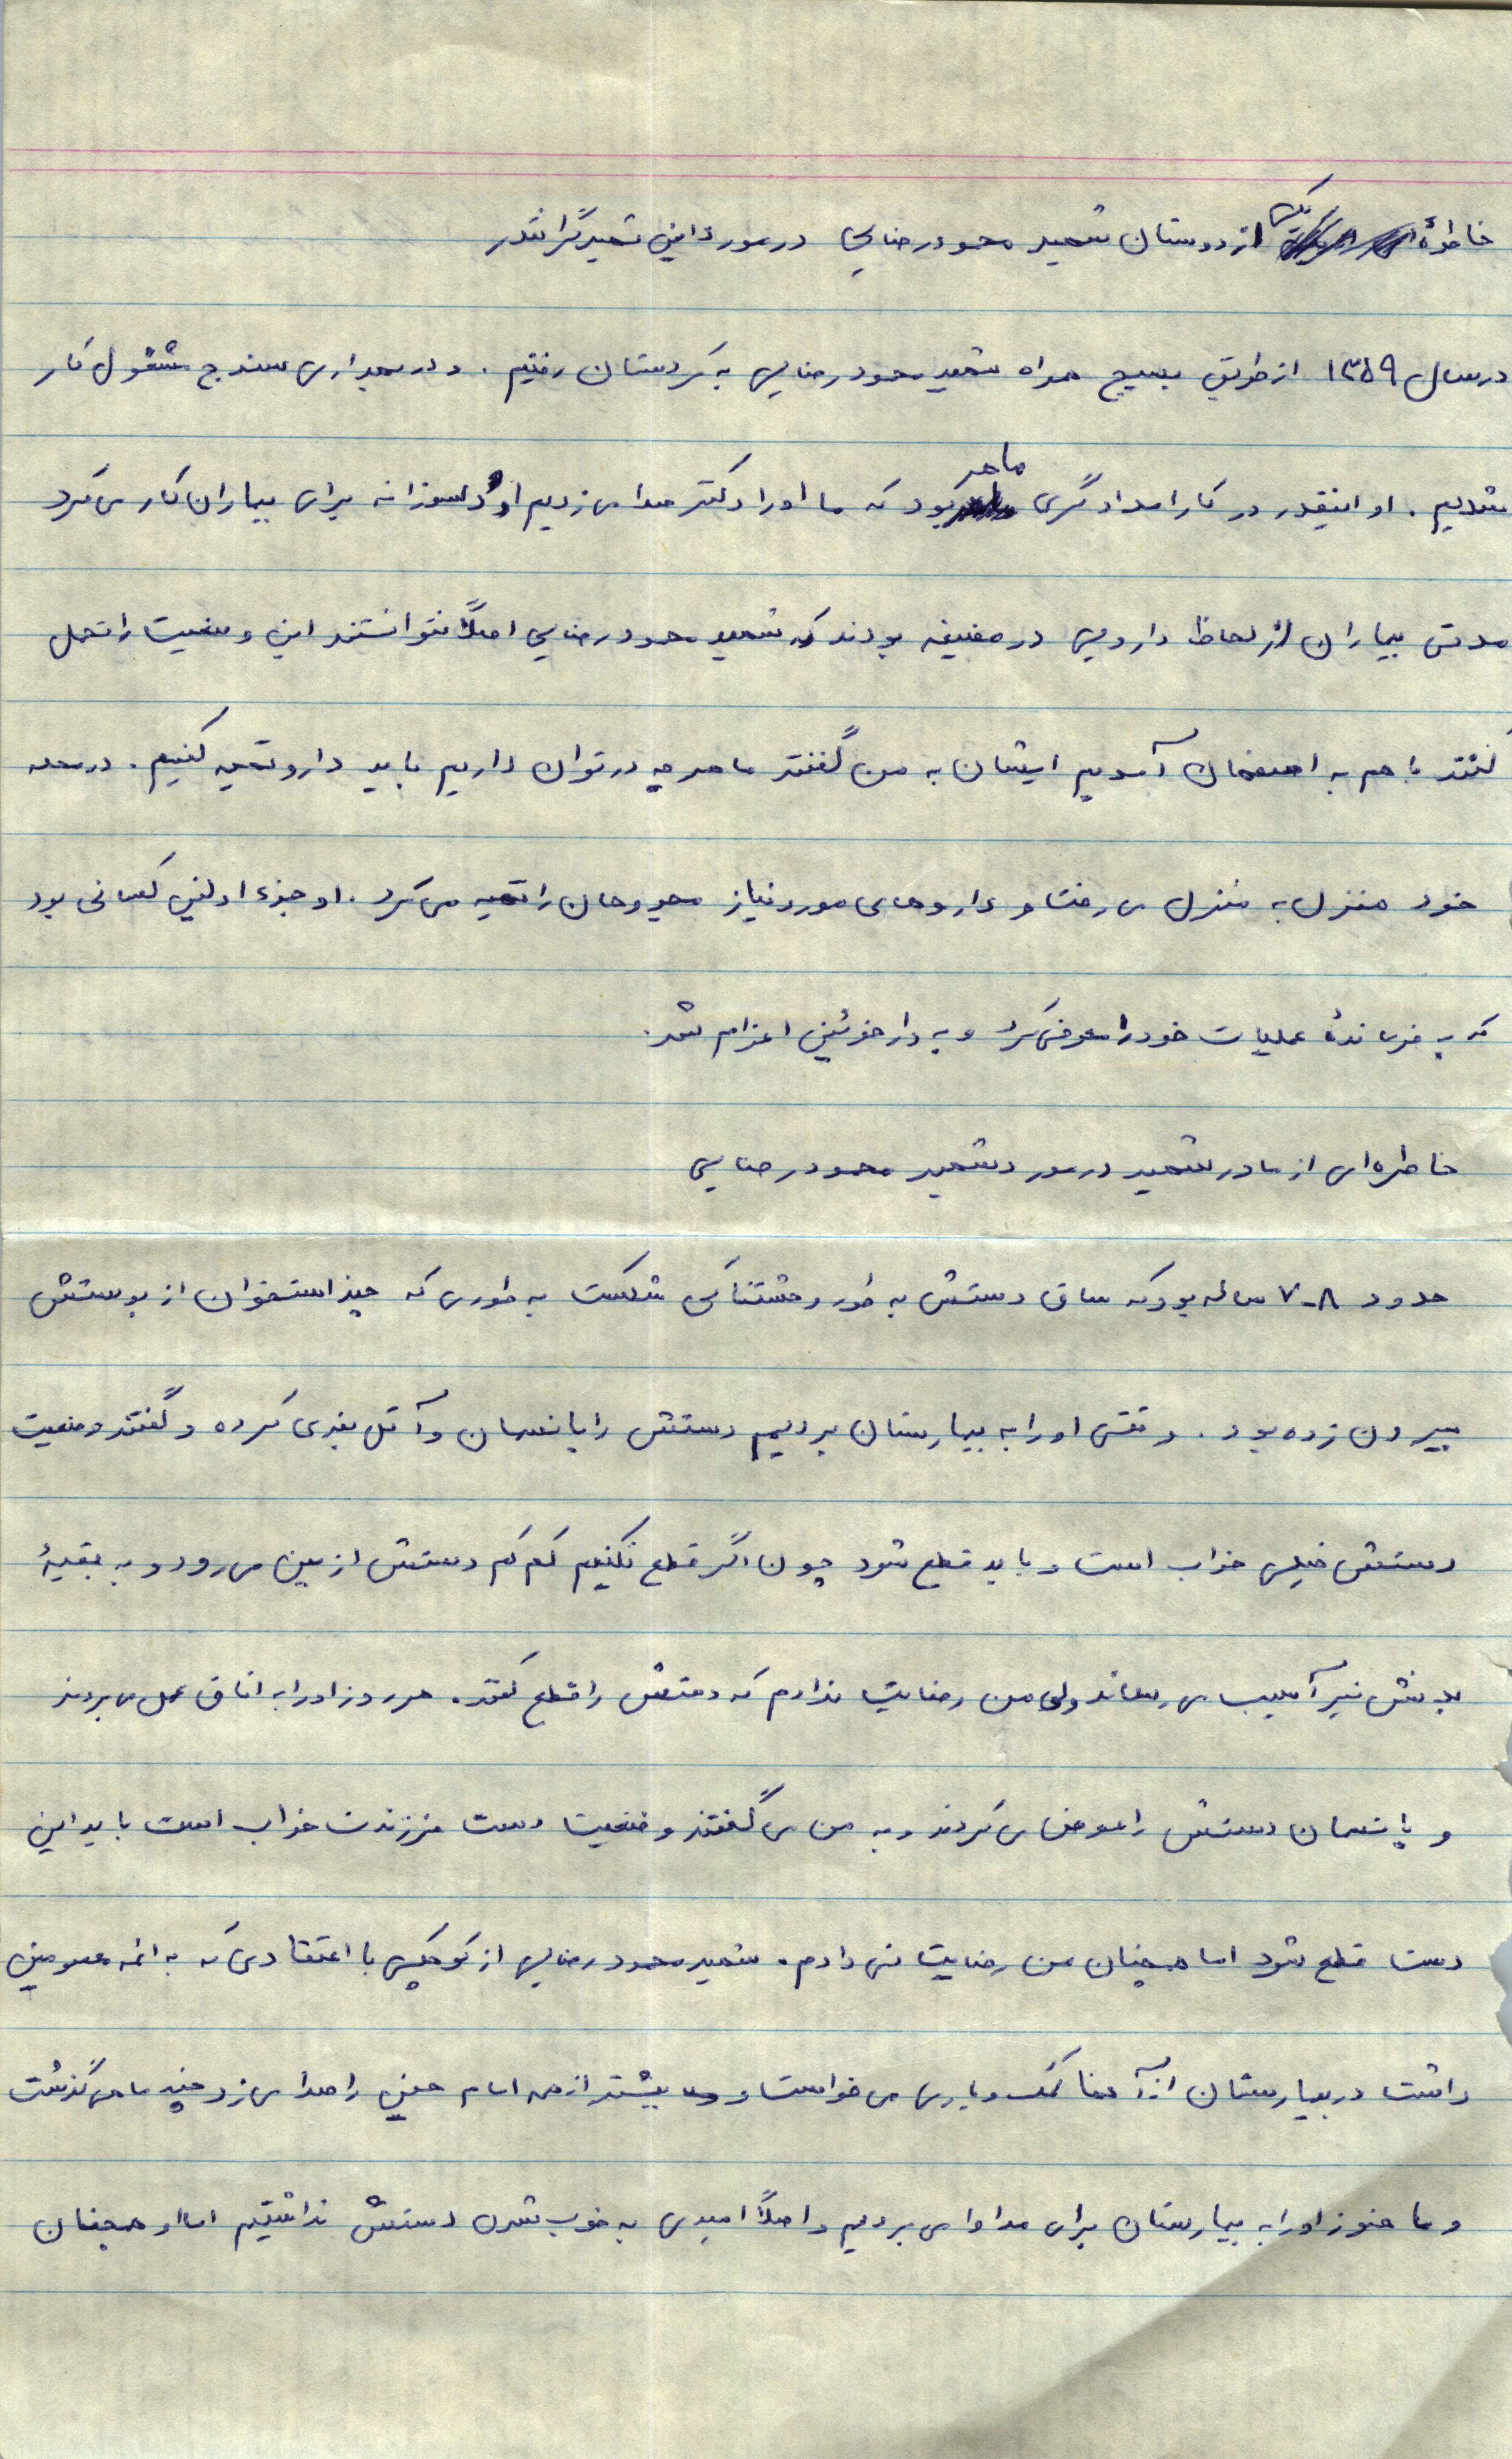 خاطرهٔ یکی از دوستان شهید محمود رضایی در مورد این شهید گرانقدر
در سال ۱۳۵۹ از طریق بسیج همراه شهید محمود رضایی به کردستان رفتیم . و در بهداری سنندج مشغول کار
شدیم . او اینقدر در کار امدادگری ماهر بود که ما او را دکتر صدا می زدیم او دلسوزانه برای بیماران کار می کرد
مدتی بیماران از لحاظ دارویی در مضیقه بودند که شهید محمود رضایی اصلاً نتوانستند این وضعیت را تحمل
کنند با هم به اصفهان آمدیم ایشان به من گفتند ما هر چه در توان داریم باید دارو تهیه کنیم . در محله
خود منزل به منزل می رفت و داروهای مورد نیاز مجروحان را تهیه می کرد . او جزء اولین کسانی بود
که به فرماندهٔ عملیات خود را معرفی کرد و به دارخوئین اعزام شد .
خاطره ای از مادر شهید در مورد شهید محمود رضایی
حدود ۷-۸ ساله بود که ساق دستش به طور وحشتناکی شکست به طوری که چند استخوان از پوستش
بیرون زده بود . وقتی او را به بیمارستان بردیم دستش را پانسمان و آتل بندی کرده و گفتند وضعیت
دستش خیلی خراب است و باید قطع شود چون اگر قطع نکنیم کم کم دستش از بین می رود و به بقیهٔ
بدنش نیز آسیب می رساند ولی من رضایت ندادم که دستش را قطع کنند . هر روز او را به اتاق عمل می بردند
و پانسمان دستش را عوض می کردند و به من می گفتند وضعیت دست فرزندت خراب است باید این
دست قطع شود اما همچنان من رضایت نمی دادم . شهید محمود رضایی از کوچکی با اعتقادی که به ائمه معصومین
داشت در بیمارستان از آنها کمک و یاری می خواست و بیشتر از همه امام حسین را صدا می زد چند ماه گذشت
و ما هنوز او را به بیمارستان برای مداوا می بردیم و اصلاً امیدی به خوب شدن دستش نداشتیم اما او همچنان